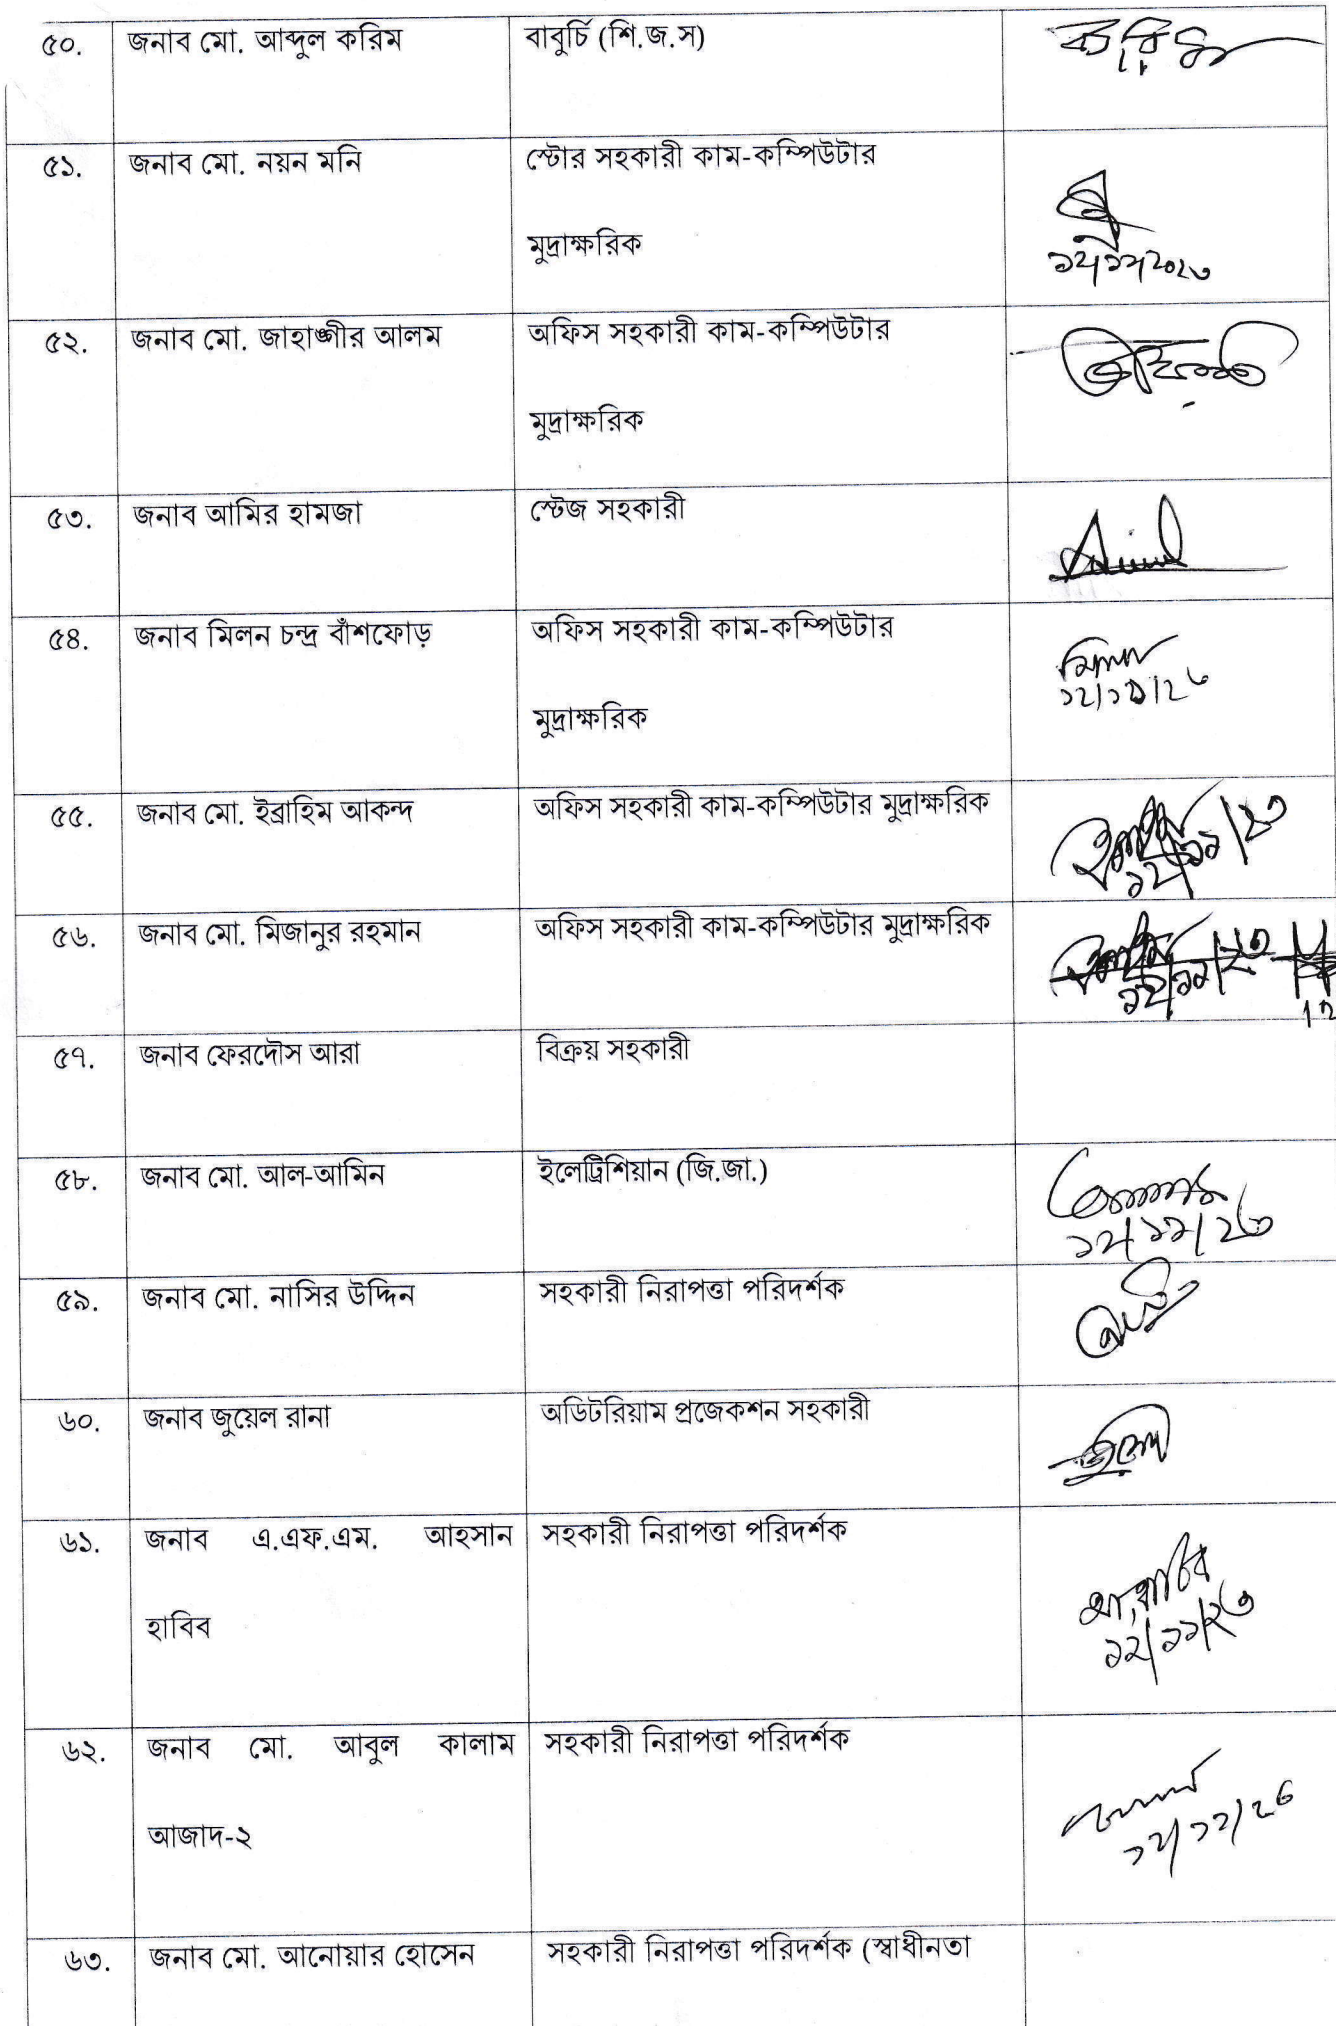 ৫০. জনাব মো. আব্দুল করিম বাবুর্চি (শি.জ.স) করিম
৫১. জনাব মো. নয়ন মনি স্টোর সহকারী কাম-কম্পিউটার
মুদ্রাক্ষরিক
১২/১১/২০২৩
৫২. জনাব মো. জাহাঙ্গীর আলম অফিস সহকারী কাম-কম্পিউটার
মুদ্রাক্ষরিক
৫৩. জনাব আমির হামজা স্টেজ সহকারী
৫৪. জনাব মিলন চন্দ্র বাঁশফোড় অফিস সহকারী কাম-কম্পিউটার
মিলন
মুদ্রাক্ষরিক
৫৫. জনাব মো. ইব্রাহিম আকন্দ অফিস সহকারী কাম-কম্পিউটার মুদ্রাক্ষরিক
১২/১১/২৩
৫৬. জনাব মো. মিজানুর রহমান অফিস সহকারী কাম-কম্পিউটার মুদ্রাক্ষরিক
১২/১১/২৩
৫৭. জনাব ফেরদৌস আরা বিক্রয় সহকারী
৫৮. জনাব মো. আল-আমিন ইলেট্রিশিয়ান (জি.জা.)
১২/১১/২৩
৫৯. জনাব মো. নাসির উদ্দিন সহকারী নিরাপত্তা পরিদর্শক
৬০. জনাব জুয়েল রানা অডিটরিয়াম প্রজেকশন সহকারী
জুয়েল
৬১. জনাব এ.এফ.এম. আহসান সহকারী নিরাপত্তা পরিদর্শক
হাবিব
১২/১১/২৩
৬২. জনাব মো. আবুল কালাম সহকারী নিরাপত্তা পরিদর্শক
আজাদ-২
১২/১১/২৩
৬৩. জনাব মো. আনোয়ার হোসেন সহকারী নিরাপত্তা পরিদর্শক (স্বাধীনতা